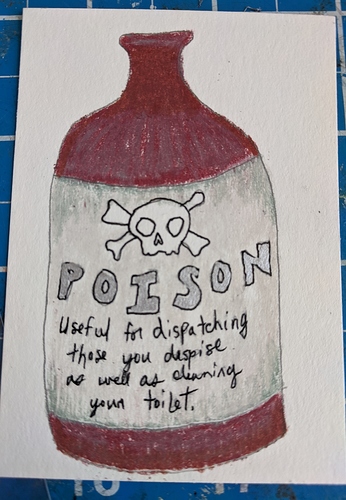 POISON
Useful for dispatching
those you despise
as well as cleaning
your toilet.